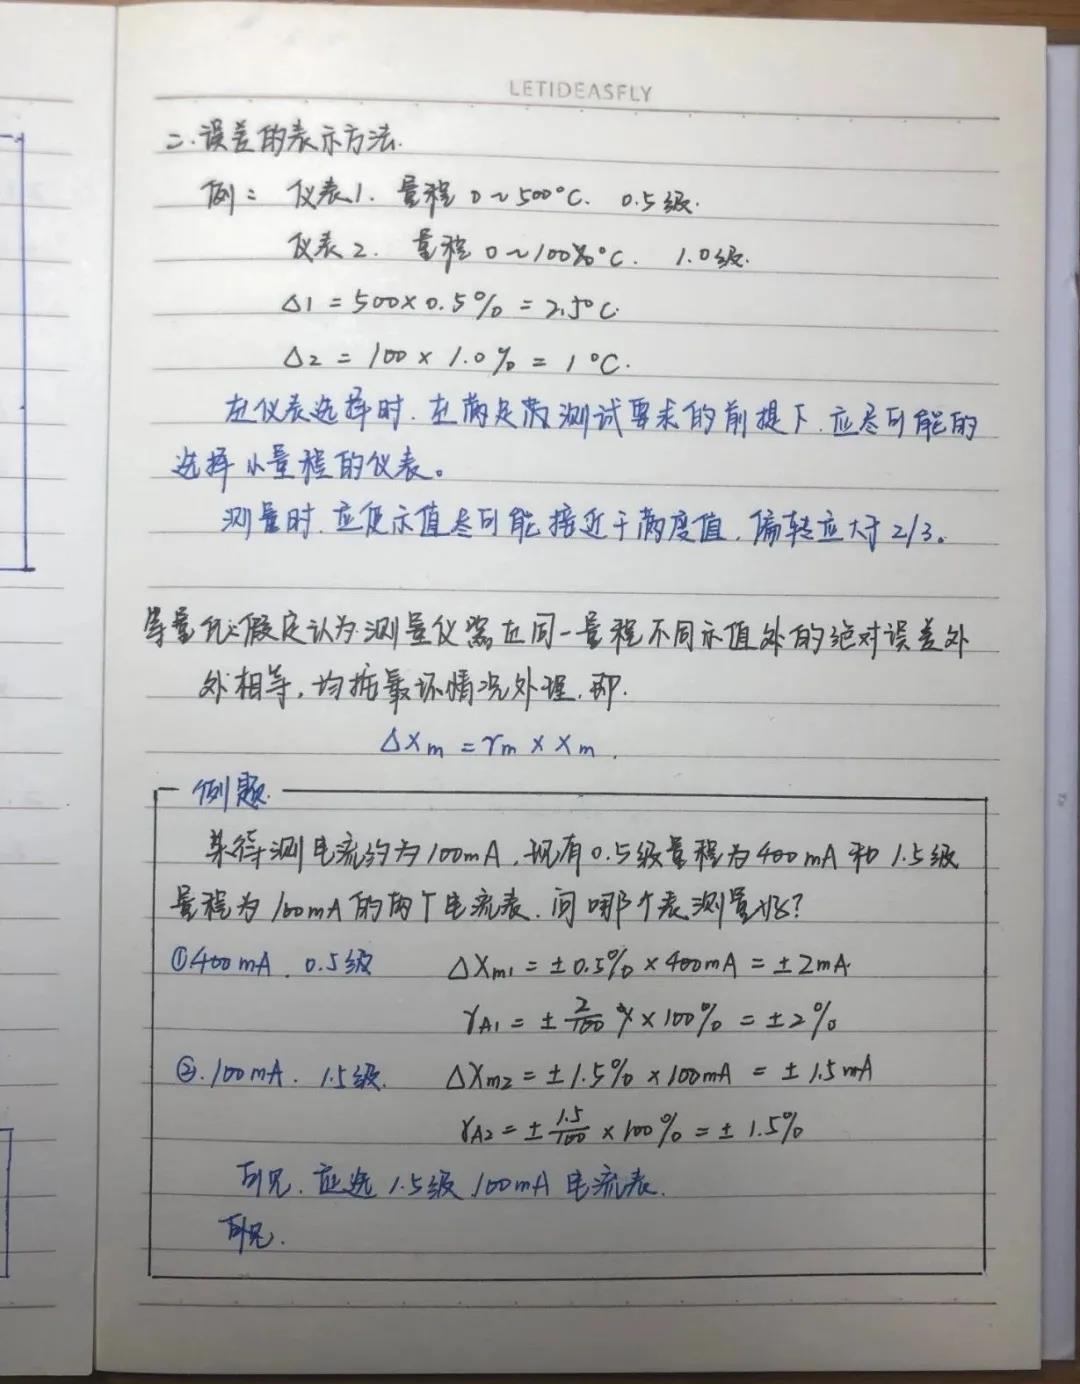 LETIDEASFLY
二.误差的表示方法.
例： 仪表1. 量程 0~500°C. 0.5级.
仪表2. 量程 0~100°C. 1.0级.
Δ1 = 500×0.5% = 2.5°C.
Δ2 = 100 × 1.0% = 1°C.
在仪表选择时.在满足测试要求的前提下.应尽可能的
选择小量程的仪表。
测量时.应使示值尽可能接近于满度值.偏转应大于2/3。
假定认为测量仪器在同一量程不同示值处的绝对误差处
处相等,均按最坏情况处理.即.
ΔXm = γm × Xm.
例题.
某待测电流约为100mA,现有0.5级量程为400mA和1.5级
量程为100mA的两个电流表.问哪个表测量好?
①400mA. 0.5级 ΔXm1 = ±0.5% × 400mA = ±2mA.
γA1 = ± 2/100 × 100% = ±2%
②.100mA. 1.5级. ΔXm2 = ±1.5% × 100mA = ±1.5mA
γA2 = ± 1.5/100 × 100% = ±1.5%
可见.应选1.5级100mA电流表.
可见.